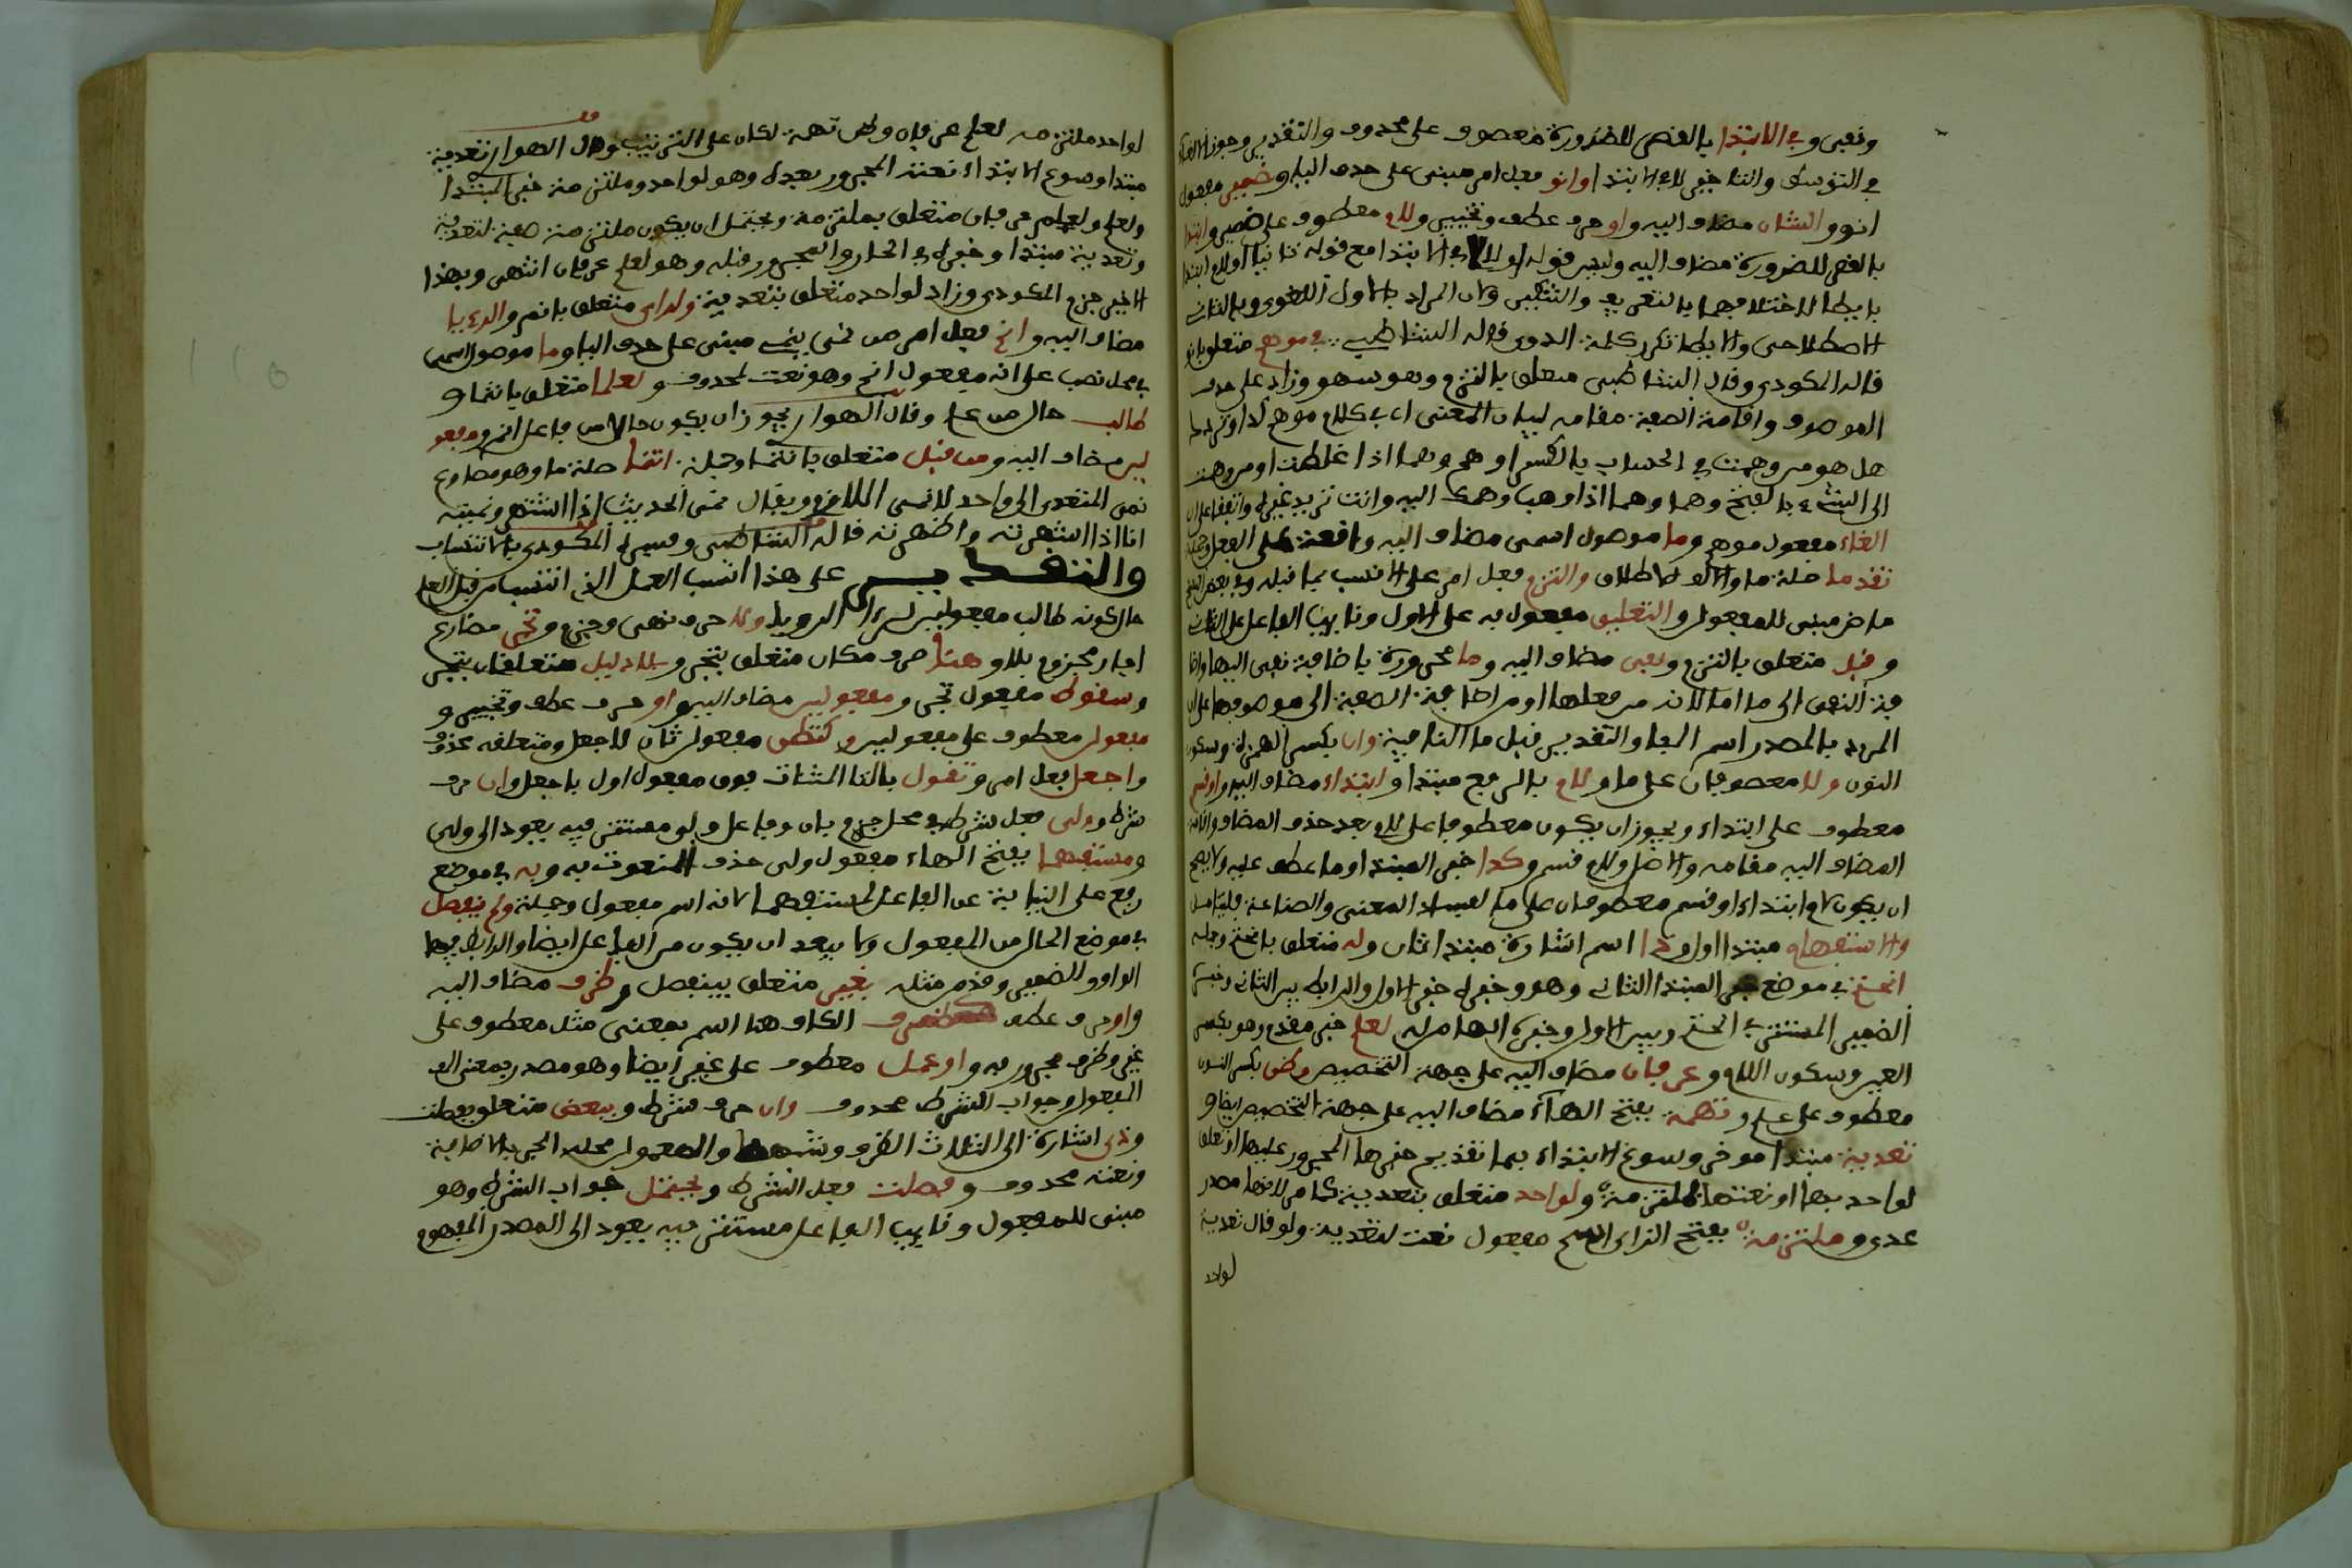 ونفي وفي الابتدا بالقصر للضرورة معطوف على محذوف والتقدير وجوز الالغاء
في التوسط وانتفا خبر لا في الابتدا وانو فعل امر مبني على حذف اليا وضمير مفعول
انو والشان مضاف اليه واو حرف عطف وتخيير ولام معطوف على ضمير وابتدا
بالقصر للضرورة مضاف اليه وليس قوله اولا في الابتدا مع قوله ثانيا او لام ابتدا
بايطا لاختلافهما بالتعريف والتنكير ولان المراد بالاول اللغوي وبالثاني
الاصطلاحي والايطا تكرر كلمة الروي قاله الشاطبي في موهم متعلق بانو
قاله المكودي وقال الشاطبي متعلق بالتزم وهو سهو وزاد على حذف
الموصوف واقامة الصفة مقامه لبيان المعنى اي في كلام موهم كذا وتردد
هل هو من وهمت في الحساب بالكسر اوهم وهما اذا غلطت او من وهمت
الى الشيء بالفتح وهما وهما اذا ذهب وهمك اليه وانت تريد غيره واتفقا على ان
الغاء مفعول موهم وما موصول اسمي مضاف اليه واقعة على الفعل وجملة
تقدما صلة ما والالف للاطلاق والتزم فعل امر على الانسب بما قبله وفي بعض النسخ
ماض مبني للمفعول والتعليق مفعول به على الاول ونايب الفاعل على الثاني
وقبل متعلق بالتزم ونفي مضاف اليه وما مجرورة باضافة نفي اليها واضا
فة النفي الى ما اما لانه من فعلها او من اضافة الصفة الى موصوفها على ان
المراد بالمصدر اسم الفاعل والتقدير قبل ما النافية وان بكسر الهمزة وسكون
النون ولا معطوفان على ما ولام بالرفع مبتدا وابتداء مضاف اليه او قسم
معطوف على ابتداء ويجوز ان يكون معطوفا على لام بعد حذف المضاف واقامة
المضاف اليه مقامه والاصل ولام قسم وكذا خبر المبتدا وما عطف عليه ولا يصح
ان يكون لام ابتداء او قسم معطوفان على ما لفساد المعنى والصناعة فليتامل
والاستفهام مبتدا اول وذا اسم اشارة مبتدا ثان وله متعلق بانحتم وجملة
انحتم في موضع خبر المبتدا الثاني وهو وخبره خبر الاول والرابط بين الثاني وخبره
الضمير المستتر في انحتم وبين الاول وخبره الها من له لعلم خبر مقدم وهو بكسر
العين وسكون اللام وعرفان مضاف اليه على جهة التخصيص وظن بكسر النون
معطوف على علم وتهمه بفتح الهاء مضاف اليه على جهة التخصيص ايضا و
تعدية مبتدا موخر وسوغ الابتداء بها تقديم خبرها المجرور عليها او تعلق
لواحد بها او نعتها بملتزمة ولواحد متعلق بتعدية كما مر لانها مصدر
عدى وملتزمة بفتح الزاي اسم مفعول نعت لتعدية ولو قال تعدية
لواحد
لواحد ملتزمه لعلم عرفان وظن تهمة لكان على الترتيب وقال الهواري تعدية
مبتدا وسوغ الابتداء نعته المجرور بعده وهو لواحد وملتزمة خبر المبتدا
ولعلم ولعلم عرفان متعلق بملتزمة ويحتمل ان يكون ملتزمة صفة لتعدية
وتعدية مبتدا وخبره في الجار والمجرور قبله وهو لعلم عرفان انتهى وبهذا
الاخير جزم المكودي وزاد لواحد متعلق بتعدية ولراى متعلق بانم والرءيا
مضاف اليه وانم فعل امر من نمى ينمى مبني على حذف اليا وما موصول اسمي
في محل نصب على انه مفعول انم وهو نعت لمحذوف ولعلما متعلق بانتما و
طالب حال من علم وقال الهواري يجوز ان يكون حالا من فاعل انم ومفعو
لين مضاف اليه ومن قبل متعلق بانتما وجملة انتما صلة ما وهو مضارع
نمى المتعدي الى واحد لا نمى اللازم ويقال نمى الحديث اذا اشتهر ونميته
انا اذا اشهرته واظهرته قاله الشاطبي وفسره المكودي بالانتساب
والتقدير على هذا انسب العمل الذي انتسب من قبل لعلم
حال كونه طالب مفعولين لرءى الرويا ولا حرف نهي وجزم وتجز مضارع
اجاز مجزوم بلا وهنا ظرف مكان متعلق بتجز وبلا دليل متعلقان بتجز
وسقوط مفعول تجز ومفعولين مضاف اليه واو حرف عطف وتخيير و
مفعول معطوف على مفعولين وكتظن مفعول ثان لاجعل ومتعلقه محذوف
واجعل فعل امر وتقول بالتا المثناة فوق مفعول اول باجعل وان حرف
شرط وولي فعل شرط في محل جزم بان وفاعل ولي مستتر فيه يعود الى ولي
ومستفهما بفتح الهاء مفعول ولي حذف المنعوت به وبه في موضع
رفع على النيابة عن الفاعل لمستفهما لانه اسم مفعول وجملة ولم ينفصل
في موضع الحال من المفعول ولا يبعد ان يكون من الفاعل ايضا والرابط فيهما
الواو والضمير وقد مر مثله بغير متعلق بينفصل وظرف مضاف اليه
واو حرف عطف كظرف الكاف هنا اسم بمعنى مثل معطوف على
غير وظرف مجرور به واو عمل معطوف على غير ايضا وهو مصدر بمعنى الف
المفعول وجواب الشرط محذوف وان حرف شرط وببعض متعلق بفصلت
وذي اشارة الى الثلاث الظرف وشبهه والمعمول محله الجر بالاضافة
ونعته محذوف وفصلت فعل الشرط ويحتمل جواب الشرط وهو
مبني للمفعول ونايب الفاعل مستتر فيه يعود الى المصدر المفهوم